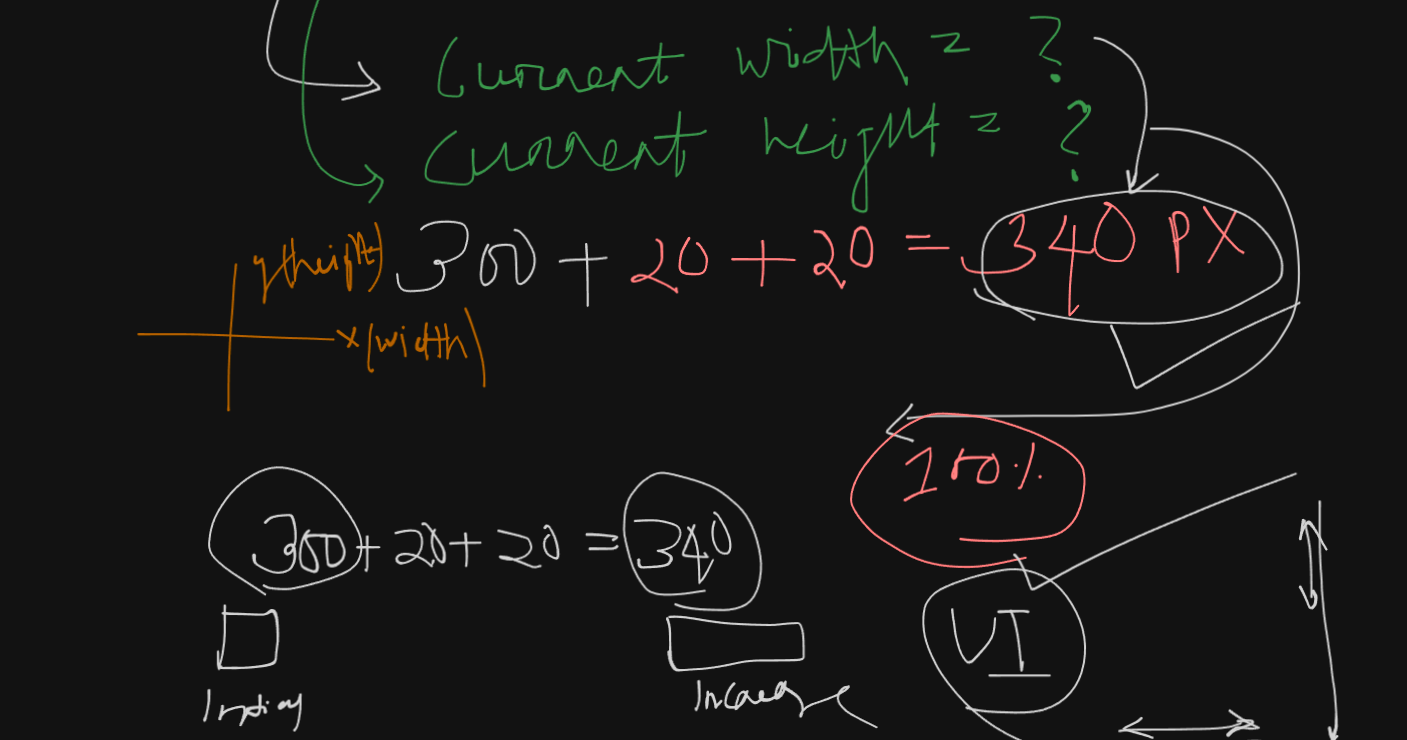 Current width = ?
Current height = ?
y(height)
300 + 20 + 20 = 340 PX
x(width)
100%
300 + 20 + 20 = 340
UI